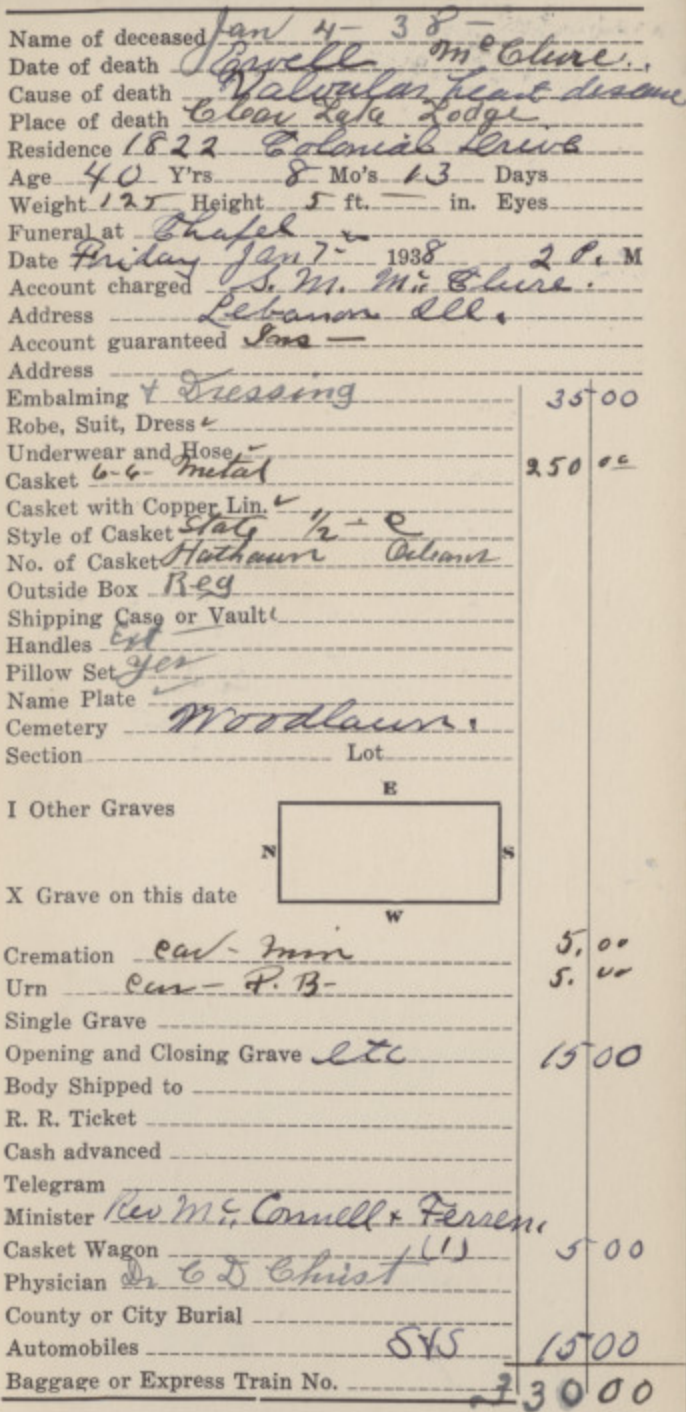 Name of deceased Jan 4 - 38 -
Date of death Ewell McClure.
Cause of death Valvular heart disease
Place of death Clear Lake Lodge
Residence 1822 Colonial Drive
Age 40 Y'rs 8 Mo's 13 Days
Weight 125 Height 5 ft. — in. Eyes
Funeral at Chapel
Date Friday Jan 7 - 1938 2 P. M
Account charged S. M. McClure.
Address Lebanon Ill.
Account guaranteed Ins —
Address
Embalming & Dressing 35 00
Robe, Suit, Dress ✓
Underwear and Hose ✓
Casket 6-6- Metal 250 00
Casket with Copper Lin. ✓
Style of Casket State 1/2 - C
No. of Casket
Outside Box Reg
Shipping Case or Vault
Handles Ext
Pillow Set Yes
Name Plate ✓
Cemetery Woodlawn.
Section Lot
E
I Other Graves
N S
X Grave on this date
W
Cremation Car - Min 5.00
Urn Car - P. B- 5.00
Single Grave
Opening and Closing Grave etc 15 00
Body Shipped to
R. R. Ticket
Cash advanced
Telegram
Minister Rev McConnell & Ferren
Casket Wagon (1) 5 00
Physician Dr C D Christ
County or City Burial
Automobiles 5 15 00
Baggage or Express Train No. 330 00